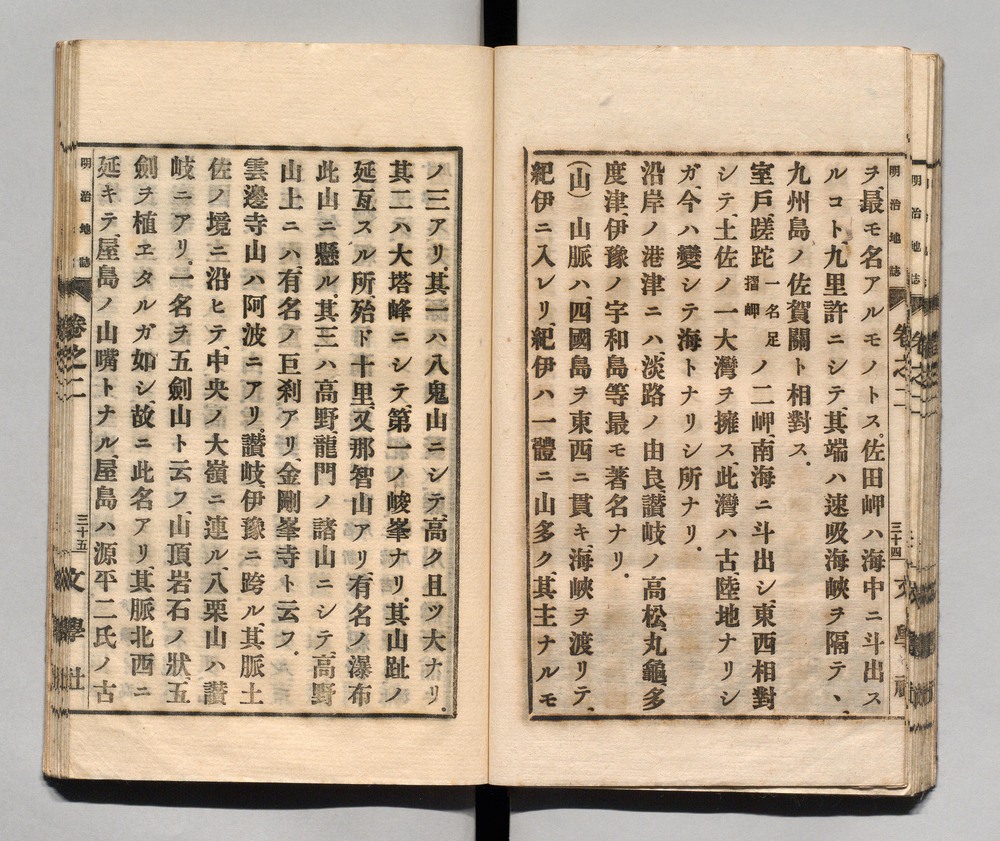 明治地誌 卷之二 三十四 文學社
ヲ、最モ名アルモノトス。佐田岬ハ海中ニ斗出ス
ルコト、九里許ニシテ、其端ハ速吸海峽ヲ隔テヽ、
九州島ノ佐賀關ト相對ス.
室戸、蹉跎 一名足摺岬 ノ二岬、南海ニ斗出シ、東西相對
シテ、土佐ノ一大灣ヲ擁ス、此灣ハ古、陸地ナリシ
ガ、今ハ變シテ海トナリシ所ナリ.
沿岸ノ港津ニハ淡路ノ由良讃岐ノ高松丸龜多
度津、伊豫ノ宇和島等最モ著名ナリ.
(山) 山脈ハ、四國島ヲ東西ニ貫キ、海峽ヲ渡リテ、
紀伊ニ入レリ、紀伊ハ一體ニ山多ク、其主ナルモ
ノ三アリ、其一ハ八鬼山ニシテ、高ク且ツ大ナリ.
其二ハ大塔峰ニシテ、第一ノ峻峯ナリ.其山趾ノ
延亙スル所殆ド十里、又那智山アリ有名ノ瀑布
此山ニ懸ル.其三ハ高野、龍門ノ諸山ニシテ、高野
山上ニハ、有名ノ巨刹アリ、金剛峯寺ト云フ.
雲邊寺山ハ阿波ニアリ.讃岐、伊豫ニ跨ル、其脈土
佐ノ境ニ沿ヒテ、中央ノ大嶺ニ連ル、八栗山ハ、讃
岐ニアリ.一名ヲ五劍山ト云フ、山頂岩石ノ狀、五
劍ヲ植ヱタルガ如シ故ニ此名アリ、其脈北西ニ
延キテ、屋島ノ山嘴トナル、屋島ハ源平二氏ノ古
明治地誌 卷之二 三十五 文學社